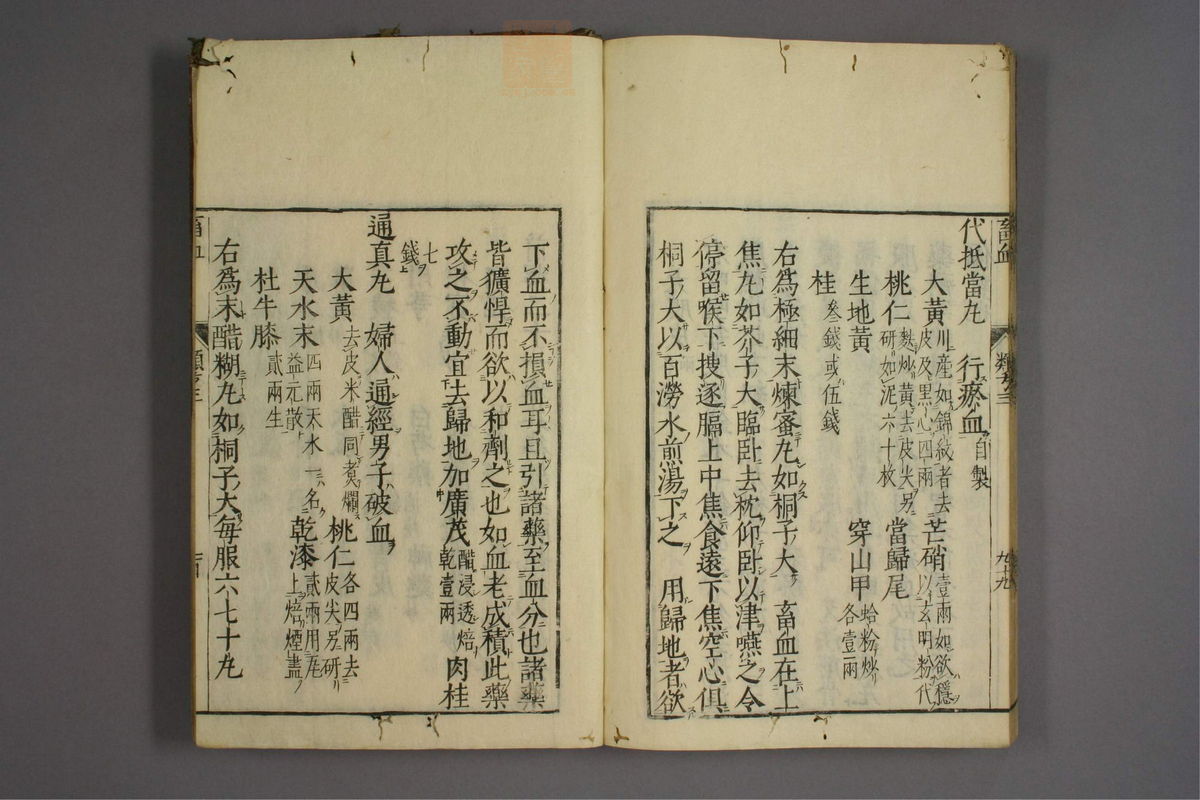 畜血
類考三
九十九
代抵當丸　行瘀血自製
大黃川産如錦紋者去皮及黒心四兩　芒硝壹兩如欲穩以玄明粉代
桃仁麩炒黄去皮尖另研如泥六十枚　當歸尾
生地黃　穿山甲蛤粉炒各壹兩
桂叁錢或伍錢
右爲極細末煉蜜丸如桐子大　畜血在上
焦丸如芥子大臨卧去枕仰卧以津嚥之令
停留喉下搜逐膈上中焦食遠下焦空心俱
桐子大以百澇水煎湯下之　用歸地者欲
下血而不損血耳且引諸藥至血分也諸藥
皆獷悍而欲以和劑之也如血老成積此藥
攻之不動宜去歸地加廣茂醋浸透焙乾壹兩肉桂
七錢
通真丸　婦人通經男子破血
大黃去皮米醋同煮爛　桃仁各四兩去皮尖另研
天水末四兩天水一名益元散　乾漆貳兩用瓦上焙煙盡
杜牛膝貳兩生
右爲末醋糊丸如桐子大每服六七十丸
畜血
類考三